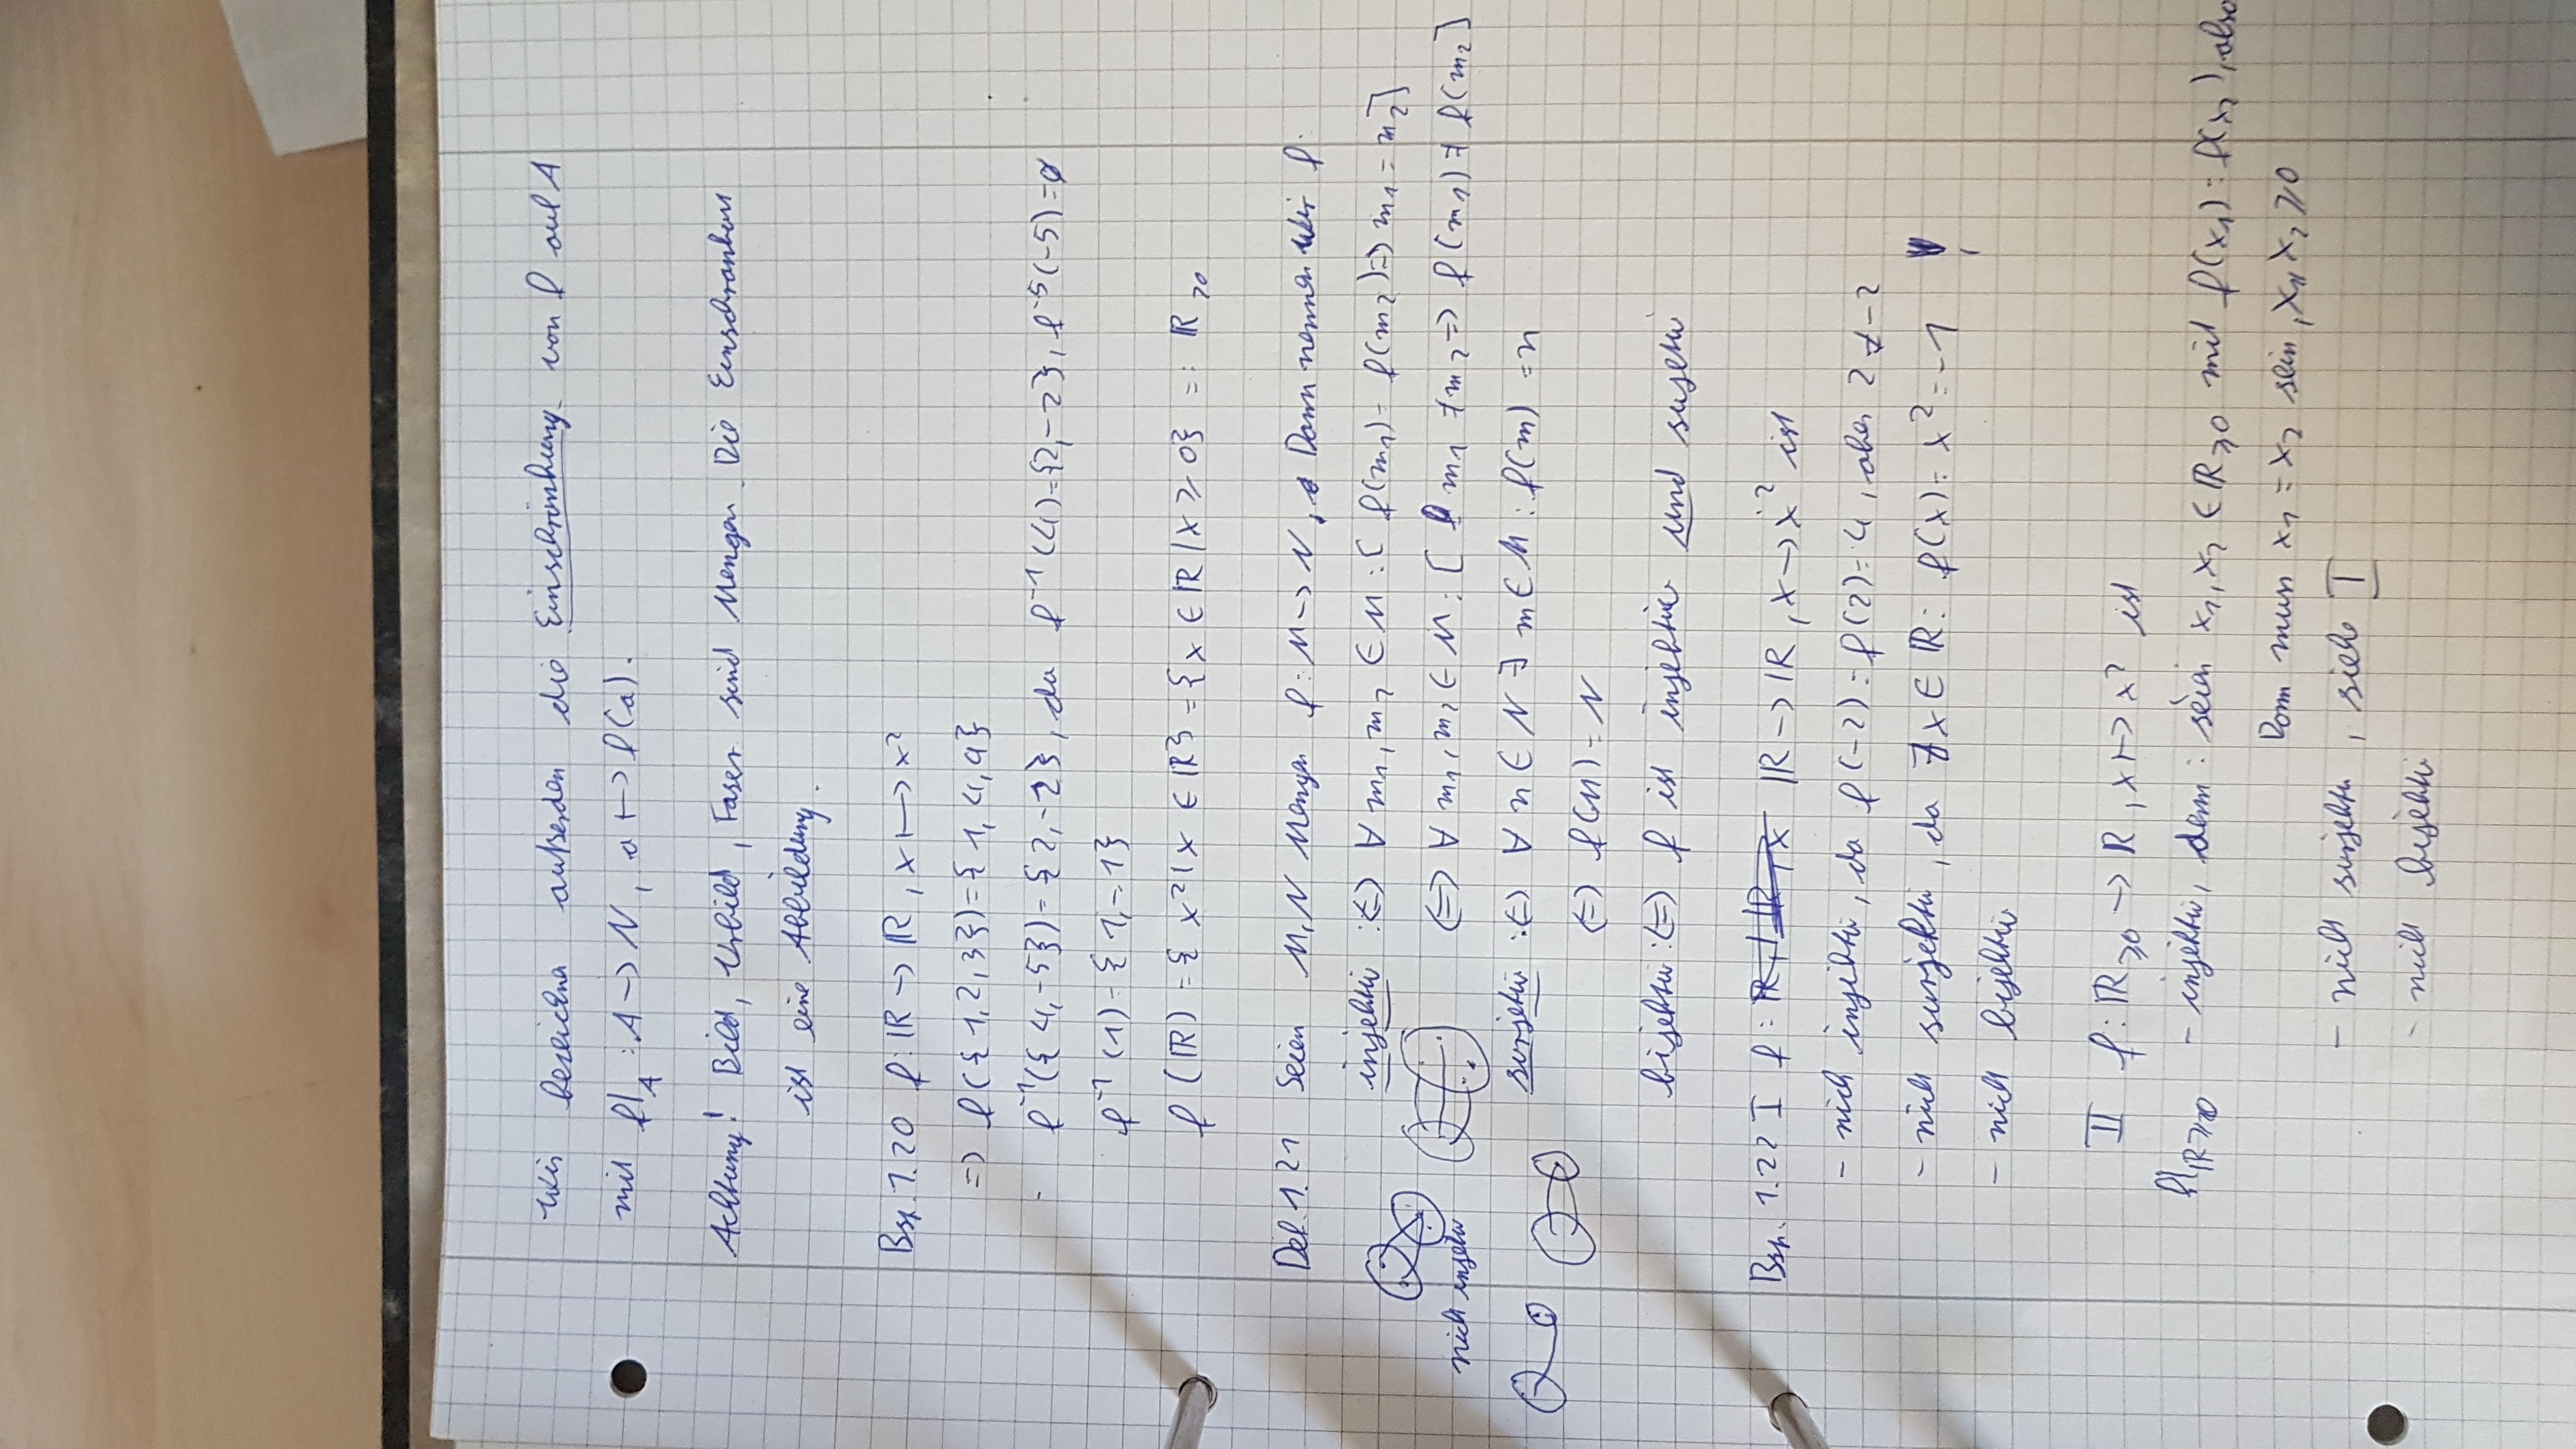 Wir bezeichn außerdem die Einschränkung von f auf A
mit f|_A : A → N, a ↦ f(a).
Achtung! Bild, Urbild, Faser sind Mengen. Die Einschränkun
ist eine Abbildung.
Bsp. 1.20 f: ℝ → ℝ, x ↦ x²
=> f({1,2,3}) = {1,4,9}
f⁻¹({4,-5}) = {2,-2}, da f⁻¹(4) = {2,-2}, f⁻⁵(-5) = ∅
f⁻¹(1) = {1,-1}
f(ℝ) = {x² | x ∈ ℝ} = {x ∈ ℝ | x ≥ 0} =: ℝ≥0
Def. 1.21 Seien M, N Mengen f: M → N, Dann nennen wir f:
injektiv :<=> ∀ m₁, m₂ ∈ M : [f(m₁) = f(m₂) => m₁ = m₂]
<=> ∀ m₁, m₂ ∈ M : [m₁ ≠ m₂ => f(m₁) ≠ f(m₂]
nich injektiv
surjektiv :<=> ∀ n ∈ N ∃ m ∈ M : f(m) = n
<=> f(M) = N
bijektiv :<=> f ist injektiv und sujektiv
Bsp. 1.22 I f: ℝ → ℝ, x → x² ist
- nich injektiv, da f(-2) = f(2) = 4, aber 2 ≠ -2
- nich surjektiv, da ∄ x ∈ ℝ : f(x) = x² = -1
- nich bijektiv
II f: ℝ≥0 → ℝ, x ↦ x² ist
f|ℝ≥0 - injektiv, denn: seien x₁, x₂ ∈ ℝ≥0 mit f(x₁) = f(x₂), also
Dann muss x₁ = x₂ sein, x₁, x₂ ≥ 0
- nicht surjektiv, siehe I
- nicht bijektiv